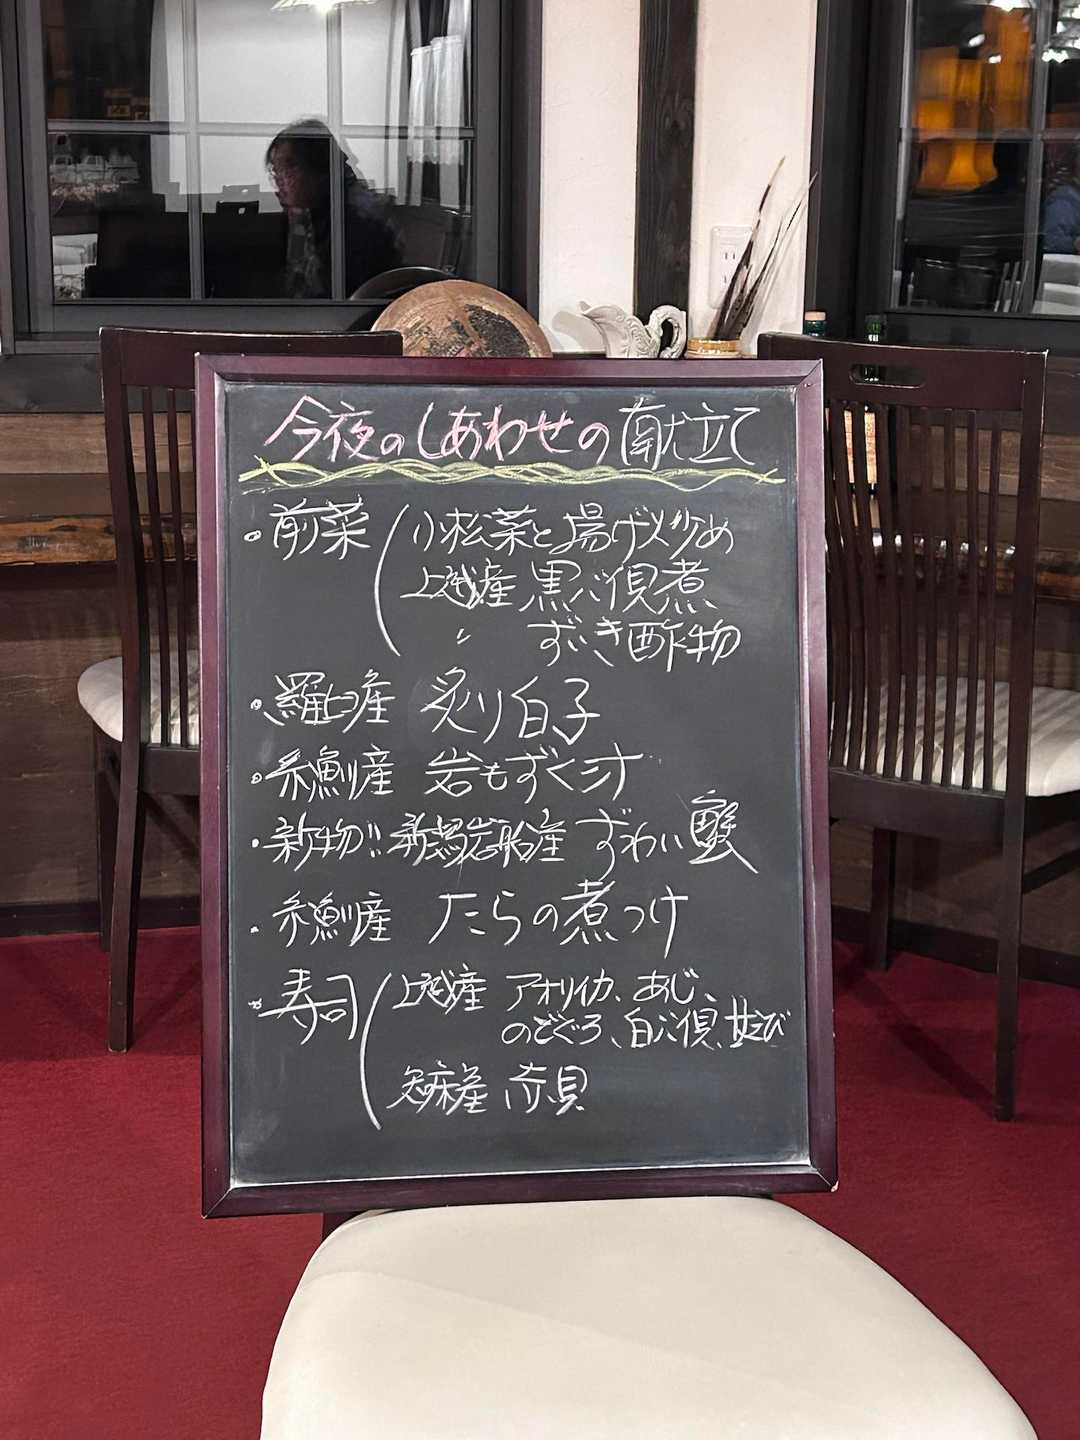 今夜のしあわせの献立て
・前菜 小松菜と揚げ炒め
上越産 黒バイ貝煮
〃 ずいき酢物
・羅臼産 炙り白子
・糸魚川産 岩もずく汁
・新物!! 新潟岩船産 ずわい蟹
・糸魚川産 たらの煮つけ
・寿司 上越産 アオリイカ、あじ、
のどぐろ、白バイ貝、甘えび
知床産 赤貝